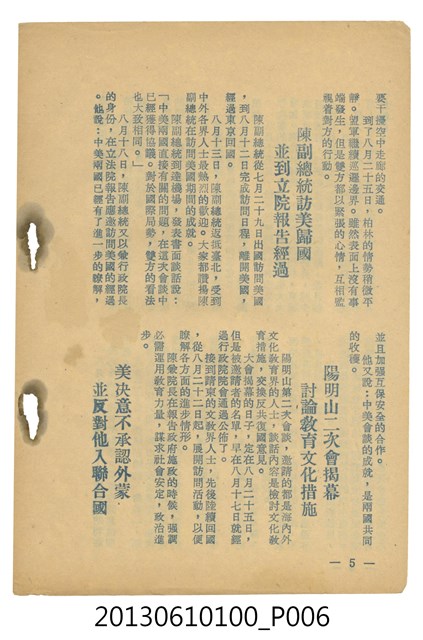 要干擾空中走廊的交通。
到了八月二十五日，柏林的情勢稍微平
靜。盟軍繼續巡邏邊界。雖然表面上沒有事
端發生，但是雙方都以緊張的心情，互相監
視着對方的行動。
陳副總統訪美歸國
並到立院報告經過
陳副總統從七月二十九日出國訪問美國
，到八月十二日完成訪問日程，離開美國，
經過東京回國。
八月十三日，陳副總統返抵臺北，受到
中外各界人士最熱烈的歡迎。大家都讚揚陳
副總統在訪問美國期間的成就。
陳副總統到達機場，發表書面談話說：
「中美兩國直接有關的問題，在這次會談中
已經獲得協議。對於國際局勢，雙方的看法
也大致相同。」
八月十八日，陳副總統又以兼行政院長
的身份，在立法院報告應邀訪問美國的經過
。他說：中美兩國已經有了進一步的瞭解，
並且加強互保安全的合作。
他又說：中美會談的成就，是兩國共同
的收穫。
陽明山二次會揭幕
討論敎育文化措施
陽明山第二次會談，邀請的都是海內外
文化敎育界的人士，談話內容是檢討文化敎
育措施，交換反共復國意見。
大會揭幕的日子，定在八月二十五日，
但是被邀請者的名單，早在八月十七日就經
過行政院院會通過公佈了。
接到請柬的文敎界人士，先後陸續回國
，從八月二十二日起，展開訪問活動，以便
瞭解各方面的進步情形。
陳兼院長在報告政府施政的時候，强調
必需運用敎育力量，謀求社會安定，政治進
步。
美決意不承認外蒙
並反對他入聯合國
— 5 —
20130610100_P006